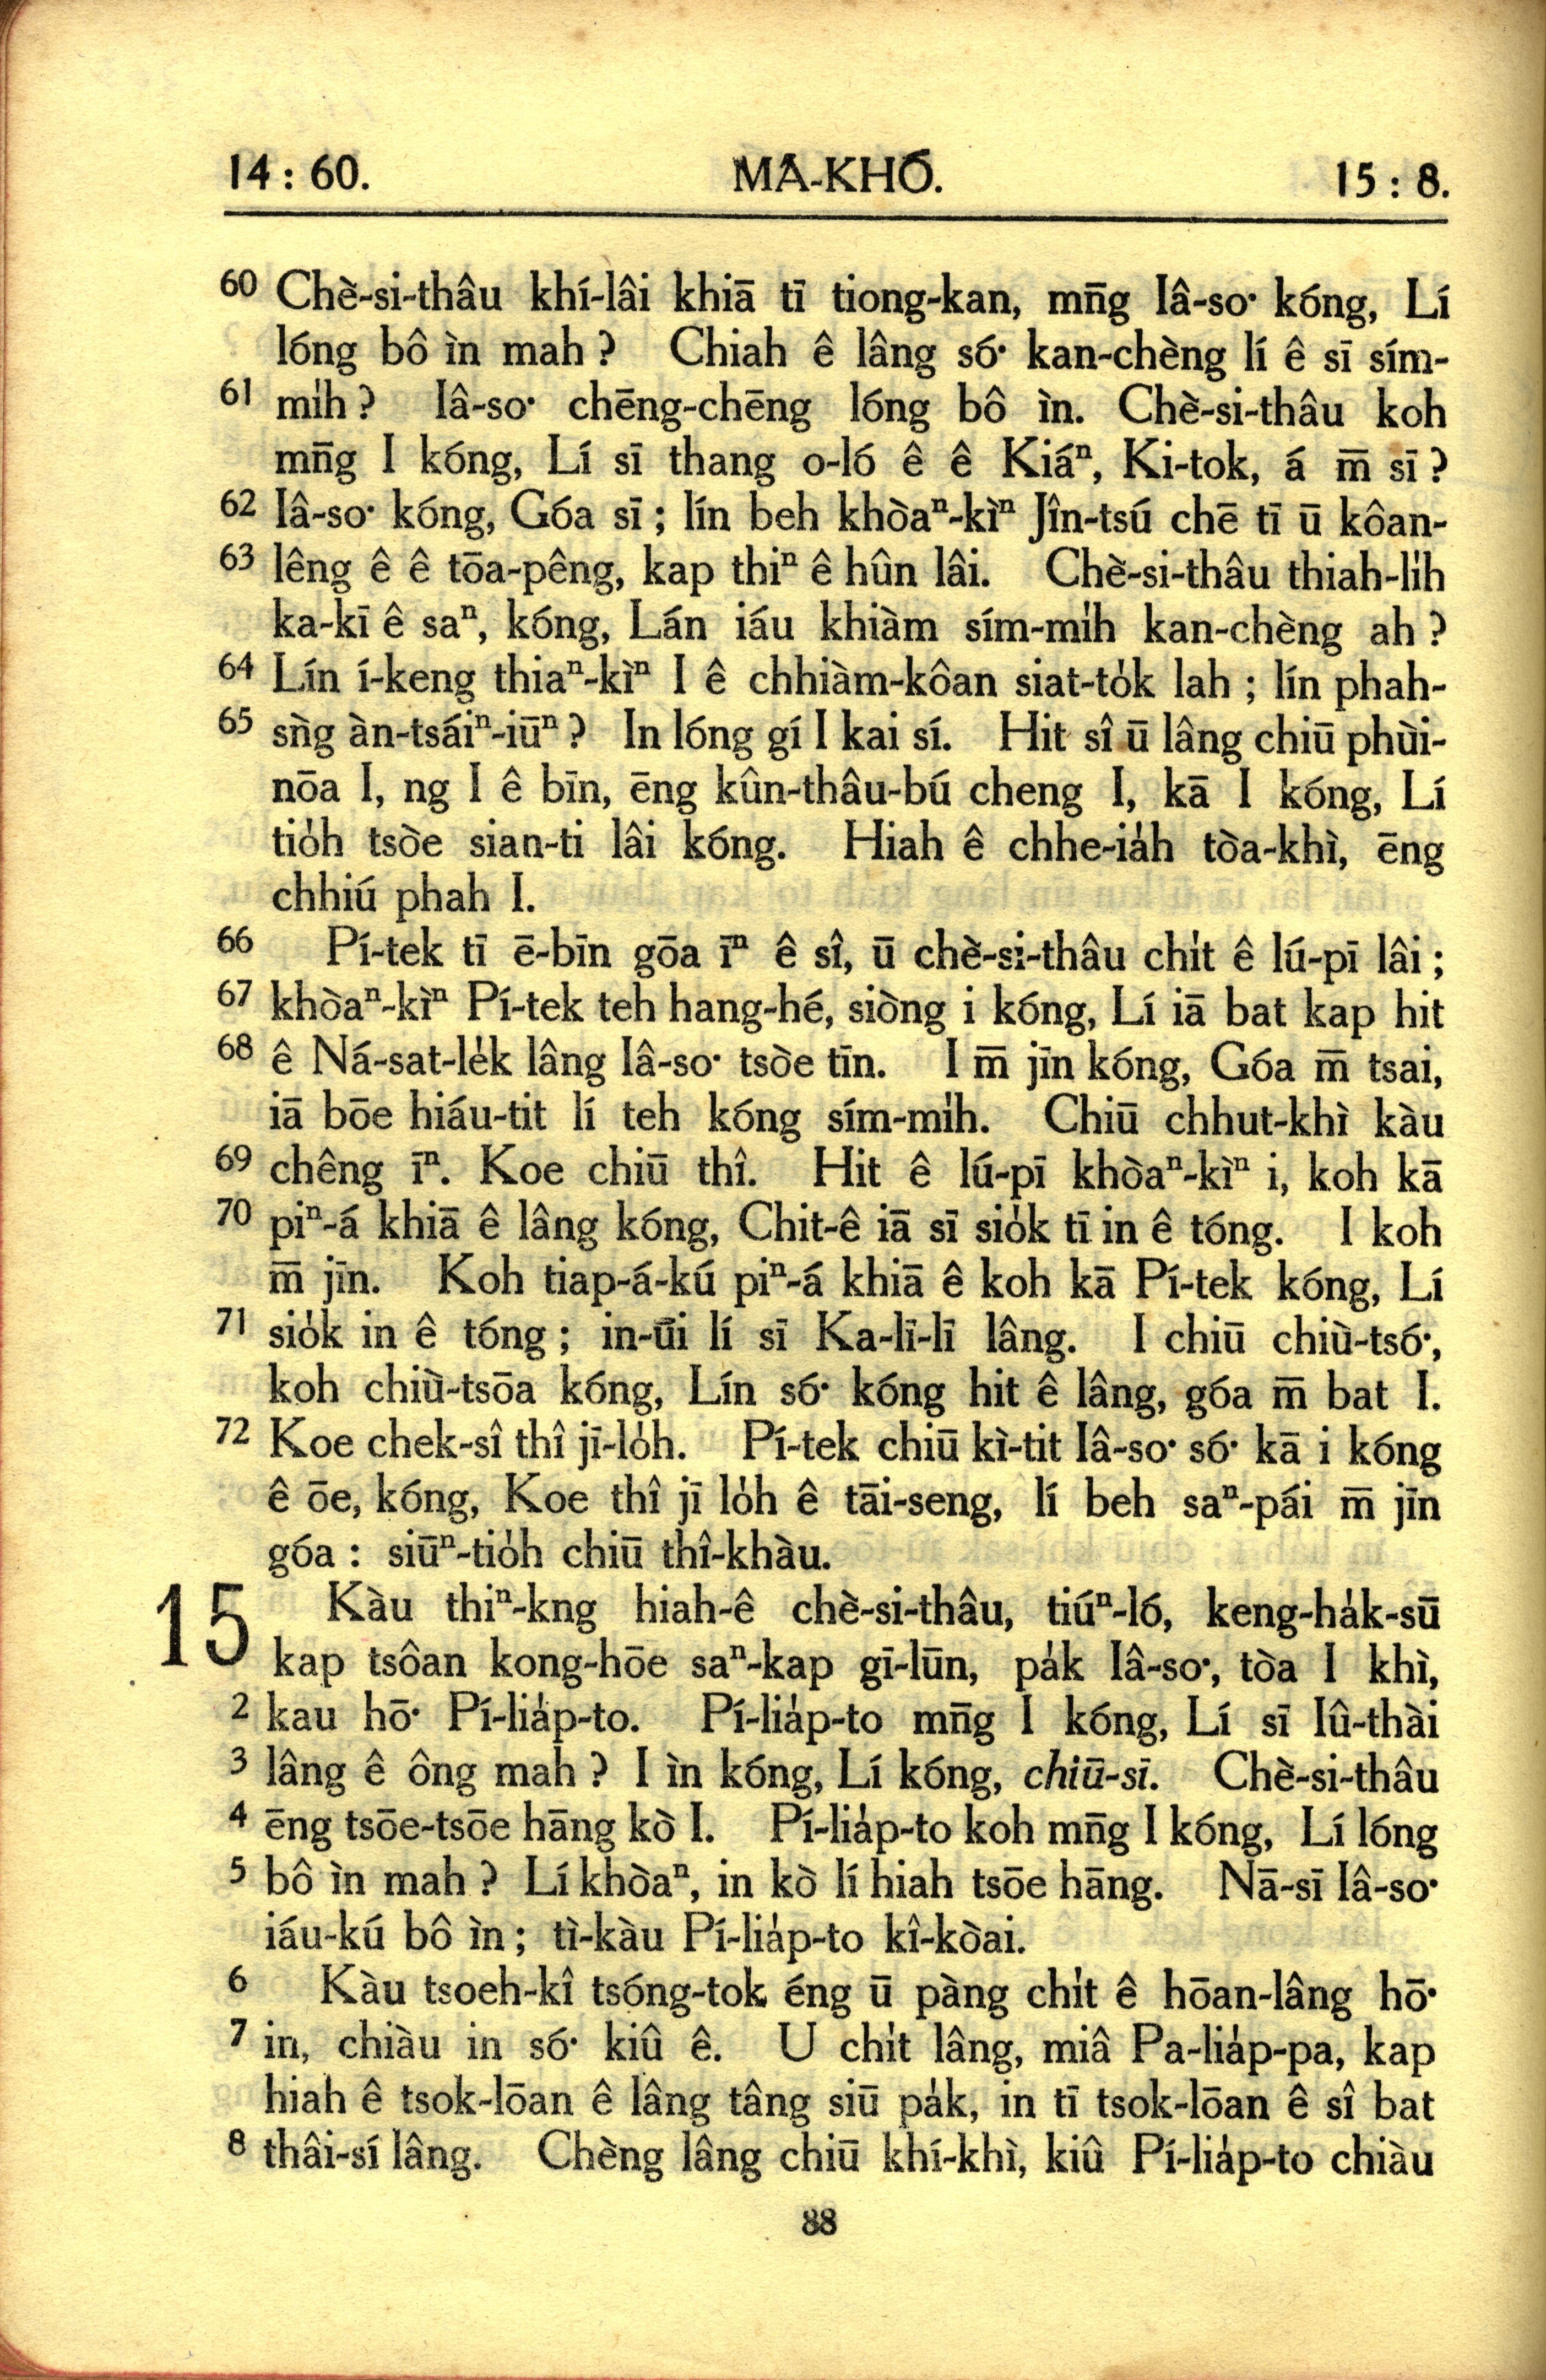 14 : 60. MÁ-KHÓ. 15 : 8.
60 Chè-si-thâu khí-lâi khiā tī tiong-kan, mn̄g Iâ-so͘ kóng, Lí
lóng bô ìn mah ? Chiah ê lâng só͘ kan-chèng lí ê sī sím-
61 mi̍h ? Iâ-so͘ chēng-chēng lóng bô ìn. Chè-si-thâu koh
mn̄g I kóng, Lí sī thang o-ló ê ê Kiáⁿ, Ki-tok, á m̄ sī ?
62 Iâ-so͘ kóng, Góa sī ; lín beh khòaⁿ-kìⁿ Jîn-tsú chē tī ū kôan-
63 lêng ê ê tōa-pêng, kap thiⁿ ê hûn lâi. Chè-si-thâu thiah-li̍h
ka-kī ê saⁿ, kóng, Lán iáu khiàm sím-mi̍h kan-chèng ah ?
64 Lín í-keng thiaⁿ-kìⁿ I ê chhiàm-kôan siat-to̍k lah ; lín phah-
65 sǹg àn-tsáiⁿ-iūⁿ ? In lóng gí I kai sí. Hit sî ū lâng chiū phùi-
nōa I, ng I ê bīn, ēng kûn-thâu-bú cheng I, kā I kóng, Lí
tio̍h tsòe sian-ti lâi kóng. Hiah ê chhe-ia̍h tòa-khì, ēng
chhiú phah I.
66 Pí-tek tī ē-bīn gōa īⁿ ê sî, ū chè-si-thâu chi̍t ê lú-pī lâi ;
67 khòaⁿ-kìⁿ Pí-tek teh hang-hé, siòng i kóng, Lí iā bat kap hit
68 ê Ná-sat-le̍k lâng Iâ-so͘ tsòe tīn. I m̄ jīn kóng, Góa m̄ tsai,
iā bōe hiáu-tit lí teh kóng sím-mi̍h. Chiū chhut-khì kàu
69 chêng īⁿ. Koe chiū thî. Hit ê lú-pī khòaⁿ-kìⁿ i, koh kā
70 piⁿ-á khiā ê lâng kóng, Chit-ê iā sī sio̍k tī in ê tóng. I koh
m̄ jīn. Koh tiap-á-kú piⁿ-á khiā ê koh kā Pí-tek kóng, Lí
71 sio̍k in ê tóng ; in-ūi lí sī Ka-lī-lī lâng. I chiū chiù-tsó͘,
koh chiù-tsōa kóng, Lín só͘ kóng hit ê lâng, góa m̄ bat I.
72 Koe chek-sî thî jī-lo̍h. Pí-tek chiū kì-tit Iâ-so͘ só͘ kā i kóng
ê ōe, kóng, Koe thî jī lo̍h ê tāi-seng, lí beh saⁿ-pái m̄ jīn
góa : siūⁿ-tio̍h chiū thî-khàu.
15 Kàu thiⁿ-kng hiah-ê chè-si-thâu, tiúⁿ-ló, keng-ha̍k-sū
kap tsôan kong-hōe saⁿ-kap gī-lūn, pa̍k Iâ-so͘, tòa I khì,
2 kau hō͘ Pí-lia̍p-to. Pí-lia̍p-to mn̄g I kóng, Lí sī Iû-thài
3 lâng ê ông mah ? I ìn kóng, Lí kóng, chiū-sī. Chè-si-thâu
4 ēng tsōe-tsōe hāng kò I. Pí-lia̍p-to koh mn̄g I kóng, Lí lóng
5 bô ìn mah ? Lí khòaⁿ, in kò lí hiah tsōe hāng. Nā-sī Iâ-so͘
iáu-kú bô ìn ; tì-kàu Pí-lia̍p-to kî-kòai.
6 Kàu tsoeh-kî tsóng-tok éng ū pàng chi̍t ê hōan-lâng hō͘
7 in, chiàu in só͘ kiû ê. U chi̍t lâng, miâ Pa-lia̍p-pa, kap
hiah ê tsok-lōan ê lâng tâng siū pa̍k, in tī tsok-lōan ê sî bat
8 thâi-sí lâng. Chèng lâng chiū khí-khì, kiû Pí-lia̍p-to chiàu
88